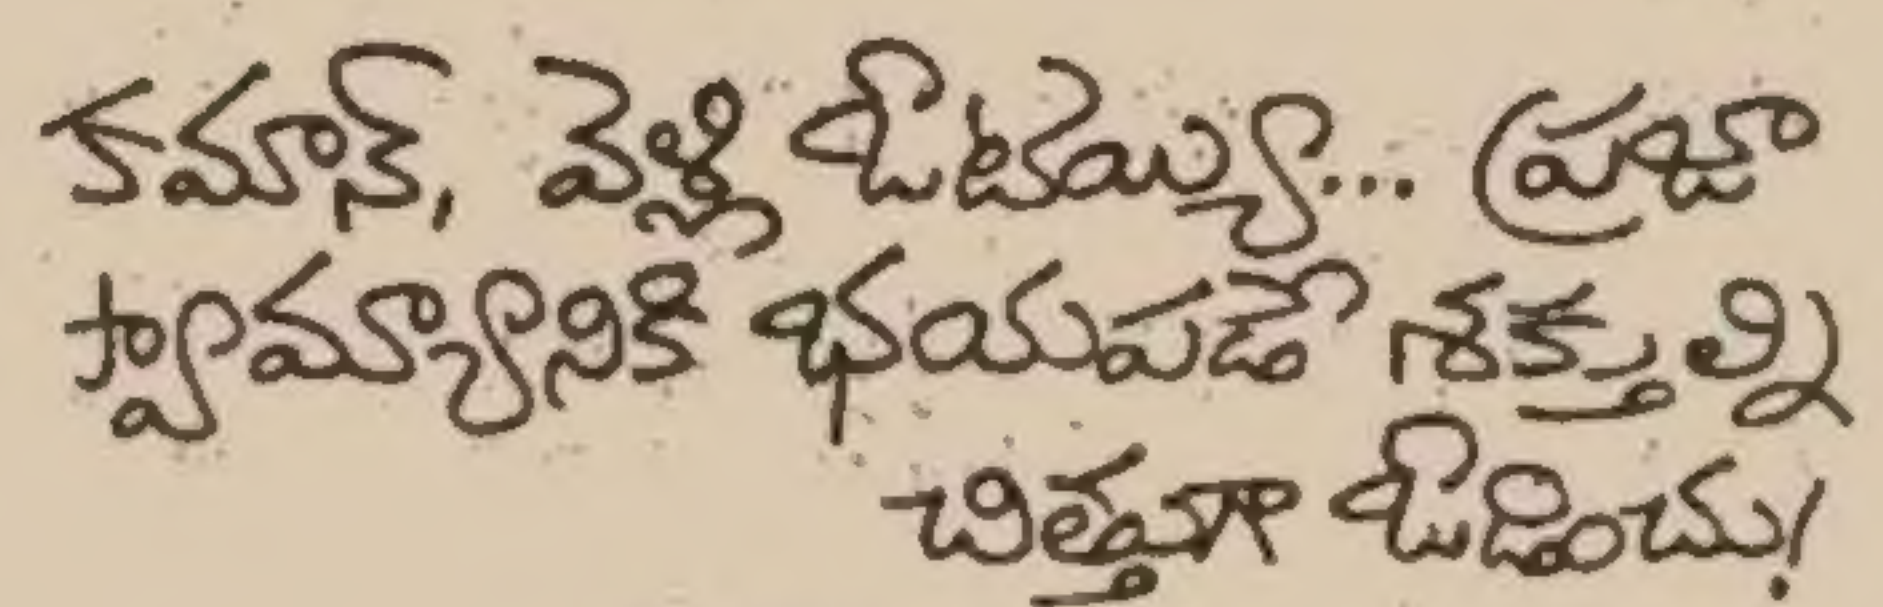 కమాన్, వెళ్లి ఓటెయ్యి... ప్రజా
స్వామ్యానికి భయపడే శక్తుల్ని
చిత్తుగా ఓడించు!